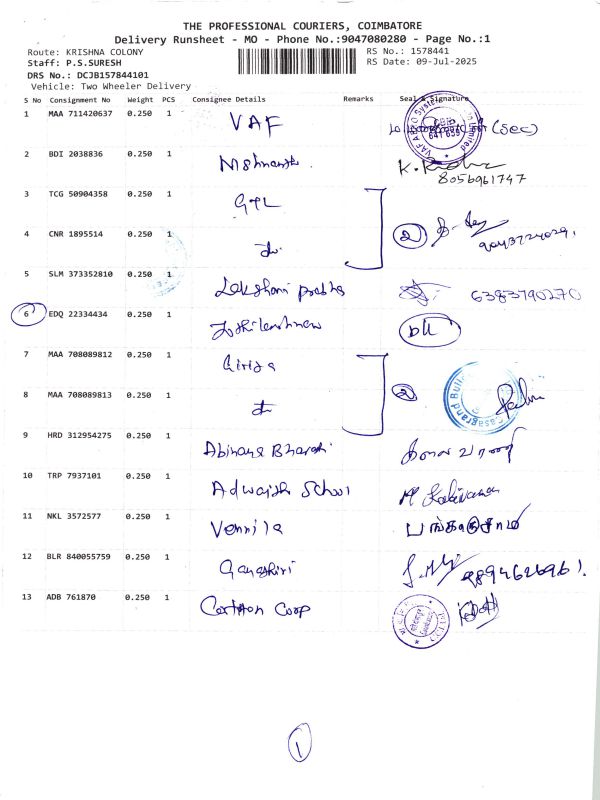 THE PROFESSIONAL COURIERS, COIMBATORE
Delivery Runsheet - MO - Phone No.:9047080280 - Page No.:1
Route: KRISHNA COLONY
RS No.: 1578441
Staff: P.S.SURESH
RS Date: 09-Jul-2025
DRS No.: DCJB157844101
Vehicle: Two Wheeler Delivery
S No Consignment No Weight PCS Consignee Details Remarks Seal & Signature
1 MAA 711420637 0.250 1 VAF (Sec)
2 BDI 2038836 0.250 1
8056961747
3 TCG 50904358 0.250 1 GTL
4 CNR 1895514 0.250 1 2
5 SLM 373352810 0.250 1 Lakshmi prabha 6383790270
6 EDQ 22334434 0.250 1
7 MAA 708089812 0.250 1 Girija
8 MAA 708089813 0.250 1 2
9 HRD 312954275 0.250 1 Abinaya Bharathi
10 TRP 7937101 0.250 1 Adwaith School
11 NKL 3572577 0.250 1 Vennila
12 BLR 840055759 0.250 1 9894626961
13 ADB 761870 0.250 1 Corp
1